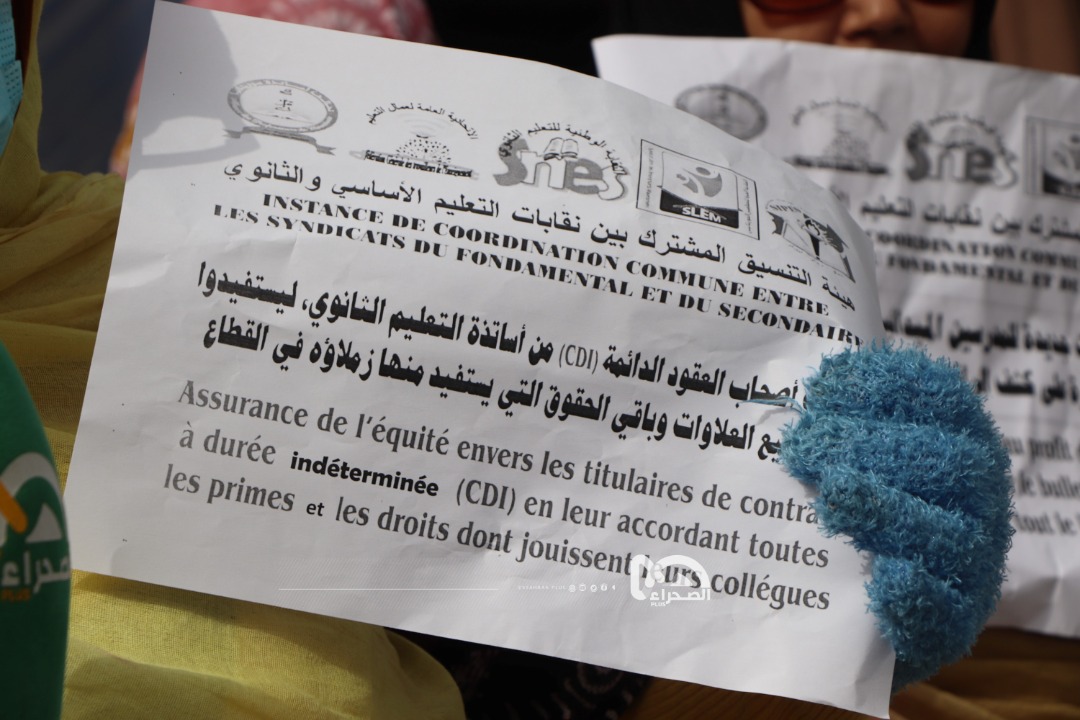 الاتحادية العامة لعمال التعليم
النقابة الوطنية للتعليم الثانوي
Snes
SLEM
هيئة التنسيق المشترك بين نقابات التعليم الأساسي والثانوي
INSTANCE DE COORDINATION COMMUNE ENTRE
LES SYNDICATS DU FONDAMENTAL ET DU SECONDAIRE
أصحاب العقود الدائمة (CDI) من أساتذة التعليم الثانوي، ليستفيدوا
العلاوات وباقي الحقوق التي يستفيد منها زملاؤه في القطاع
Assurance de l'équité envers les titulaires de contra
à durée indéterminée (CDI) en leur accordant toutes
les primes et les droits dont jouissent leurs collégues
Snes
مشترك بين نقابات التعليم
COORDINATION COMMUN
FONDAMENTAL ET DU
جديدة للمدرسين
au profit
tout le
الصحراء
PLUS
الصحراء
PLUS